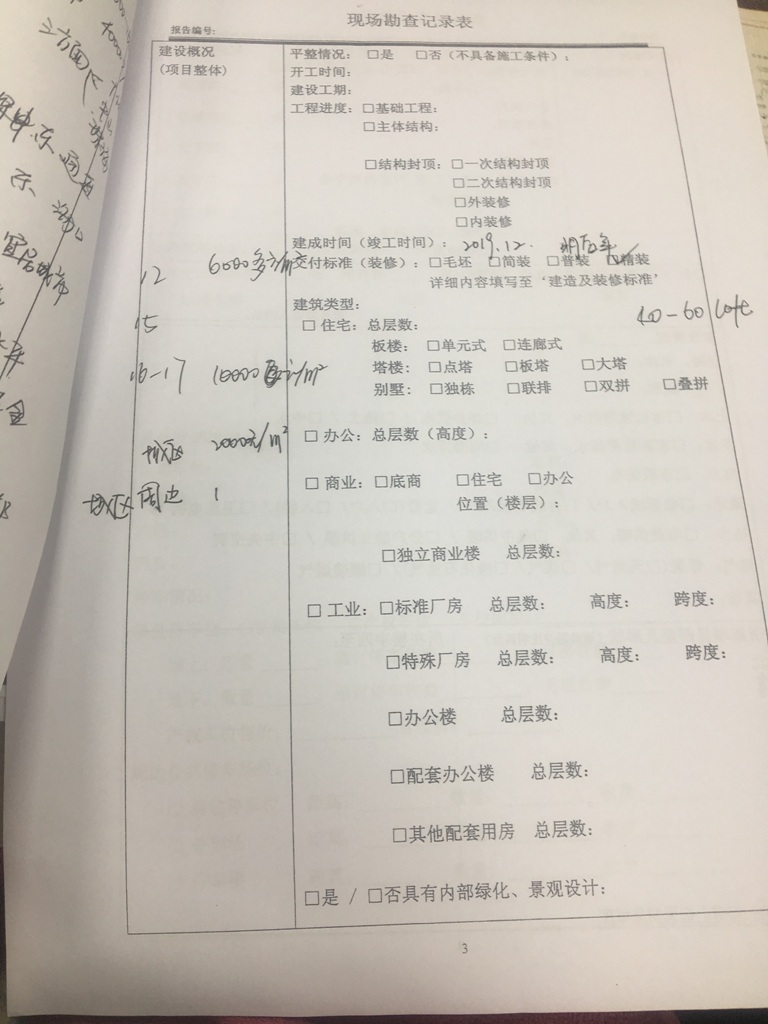 现场勘查记录表
报告编号:
建设概况
(项目整体)
平整情况: □是 □否(不具备施工条件):
开工时间:
建设工期:
工程进度: □基础工程:
□主体结构:
□结构封顶: □一次结构封顶
□二次结构封顶
□外装修
□内装修
建成时间(竣工时间): 2019.12.
交付标准(装修): □毛坯 □简装 □普装 □精装
详细内容填写至‘建造及装修标准’
12 6000多
建筑类型:
40-60
15
□ 住宅: 总层数:
板楼: □单元式 □连廊式
塔楼: □点塔 □板塔 □大塔
16-17 10000
别墅: □独栋 □联排 □双拼 □叠拼
城区 2000元/m²
□ 办公: 总层数(高度):
□ 商业: □底商 □住宅 □办公
城区周边
位置(楼层):
□独立商业楼 总层数:
□ 工业: □标准厂房 总层数: 高度: 跨度:
□特殊厂房 总层数: 高度: 跨度:
□办公楼 总层数:
□配套办公楼 总层数:
□其他配套用房 总层数:
□是 / □否具有内部绿化、景观设计:
3